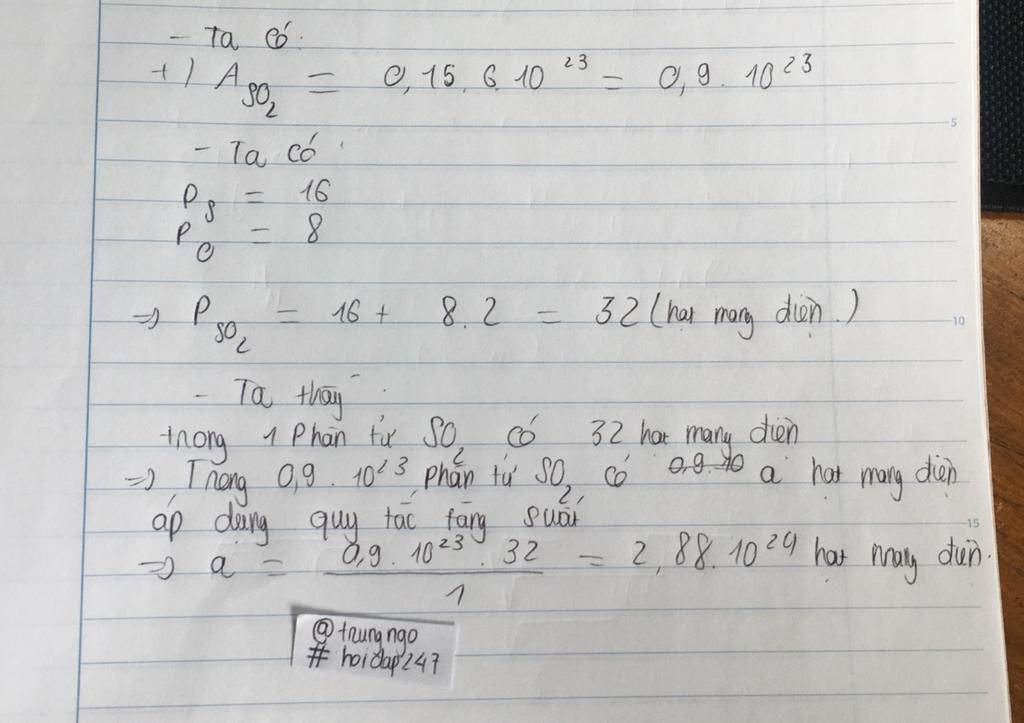 - Ta có:
+) A SO2 = 0,15.6.10^23 = 0,9.10^23
- Ta có:
P S = 16
P O = 8
=> P SO2 = 16 + 8.2 = 32 (hạt mang điện.)
- Ta thấy:
trong 1 Phân tử SO2 có 32 hạt mang điện
=> Trong 0,9.10^23 phân tử SO2 có 0,9.10 a hạt mang điện
áp dụng quy tắc tăng suất
=> a = 0,9.10^23.32 / 1 = 2,88.10^24 hạt mang điện.
@trungngo
# hoidap247
5
10
15